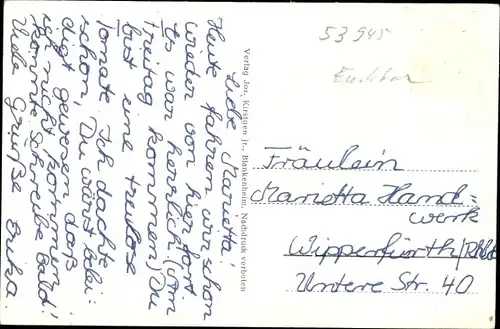 Liebe Marietta!
Heute fahren wir schon
wieder von hier fort.
Es war herrlich! (Am
Freitag kommen) Du
bist eine treulose
Tomate. Ich dachte
schon, Du wärst belei=
digt gewesen daß
ich nicht kommen
konnte. Schreibe bald!
Viele Grüße Erika
Verlag Jos. Kirstgen jr., Blankenheim, Nachdruck verboten
53 945
Fräulein
Marietta Hand=
werk
Wipperfürth/Rhld
Untere Str. 40